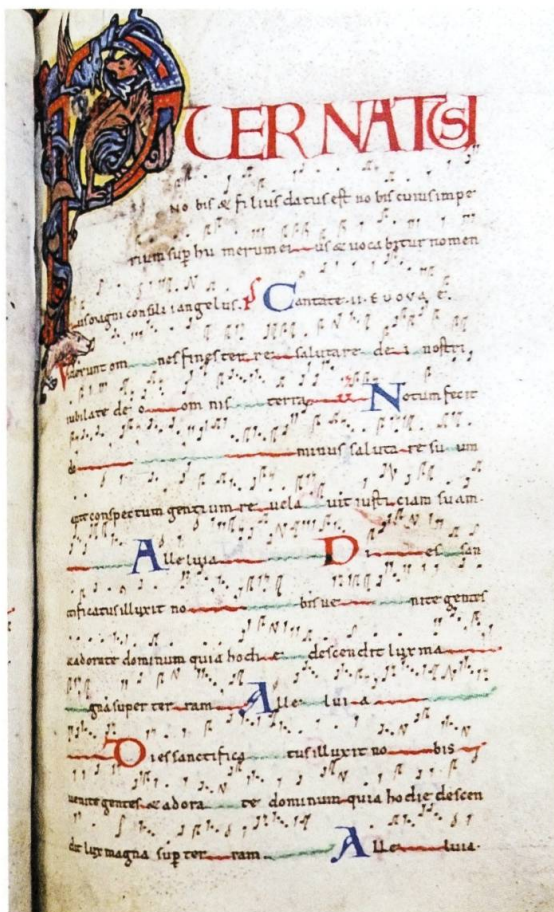 PUER NATUS
No bis & filius datus est no bis cuius impe
rium sup hu merum ei us & voca bitur nomen
magni consili i angelus. Ps Cantate .ii. E U O V A E.
Viderunt om nes fines ter re salutare de i nostri
iubilate de o om nis terra V Notum fecit
do minus saluta re su um
conspectum gentium re vela vit iusti ciam suam.
Alleluia Di es san
tificatus illuxit no bis ve nite gentes
& adorate dominum quia hodi e descendit lux ma
gna super ter ram Alle lui a
Dies sanctifica tus illuxit no bis
venite gentes & adora te dominum quia hodie descen
dit lux magna sup ter ram. Alle luia.